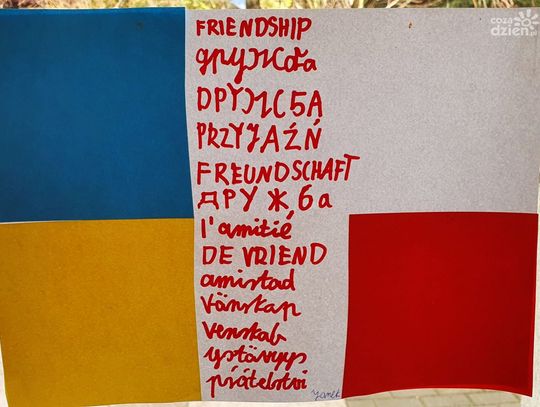 FRIENDSHIP
дружба
ДРУЖБА
PRZYJAŹŃ
FREUNDSCHAFT
ДРУЖба
l'amitié
DE VRIEND
amistad
vänskap
venskab
ystävyys
přátelství
Janek
coza
dzień.pl